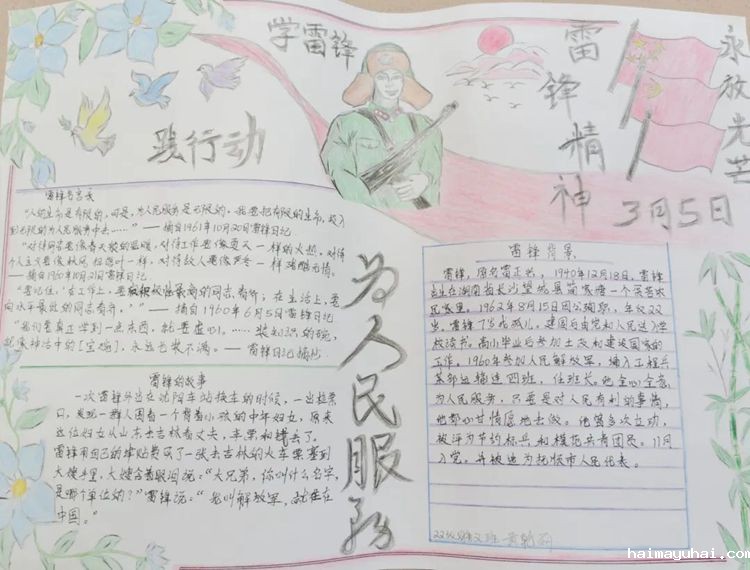 学雷锋
践行动
雷锋精神
永放光芒
3月5日
为人民服务
雷锋名言
“人的生命是有限的，可是，为人民服务是无限的，我要把有限的生命，投入
到无限的为人民服务中去……”——摘自1961年10月20日雷锋日记
“对待同志要像春天般的温暖，对待工作要像夏天一样的火热，对待
个人主义要像秋风扫落叶一样，对待敌人要像严冬一样残酷无情。
——摘自1960年10月21日雷锋日记
向水平最低的同志看齐。”——摘自1960年6月5日雷锋日记
就像神话中的[宝碗]，永远也装不满。——雷锋日记摘抄
雷锋的故事
一次雷锋外出在沈阳车站换车的时候，一出检票
口，发现一群人围着一个背着小孩的中年妇女，原来
这位妇女从山东去吉林看丈夫，车票和钱丢了。
雷锋用自己的津贴费买了一张去吉林的火车票塞到
大嫂手里，大嫂含着眼泪说：“大兄弟，你叫什么名字，
是哪个单位的？”雷锋说：“我叫解放军，就住在
中国。”
雷锋背景
雷锋，原名雷正兴，1940年12月18日，雷锋
出生在湖南省长沙望城县简家塘一个贫苦农
民家里。1962年8月15日因公殉职，年仅22
岁。雷锋7岁成孤儿，建国后由党和人民送入学
校读书。高小毕业后参加土改和建设国家的
工作。1960年参加人民解放军，编入工程兵
某部运输连四班，任班长。他全心全意
为人民服务，只要是对人民有利的事情，
他都心甘情愿地去做。他曾多次立功，
被评为节约标兵和模范共青团员。11月
入党，并被选为抚顺市人民代表。
haimayuhai.com